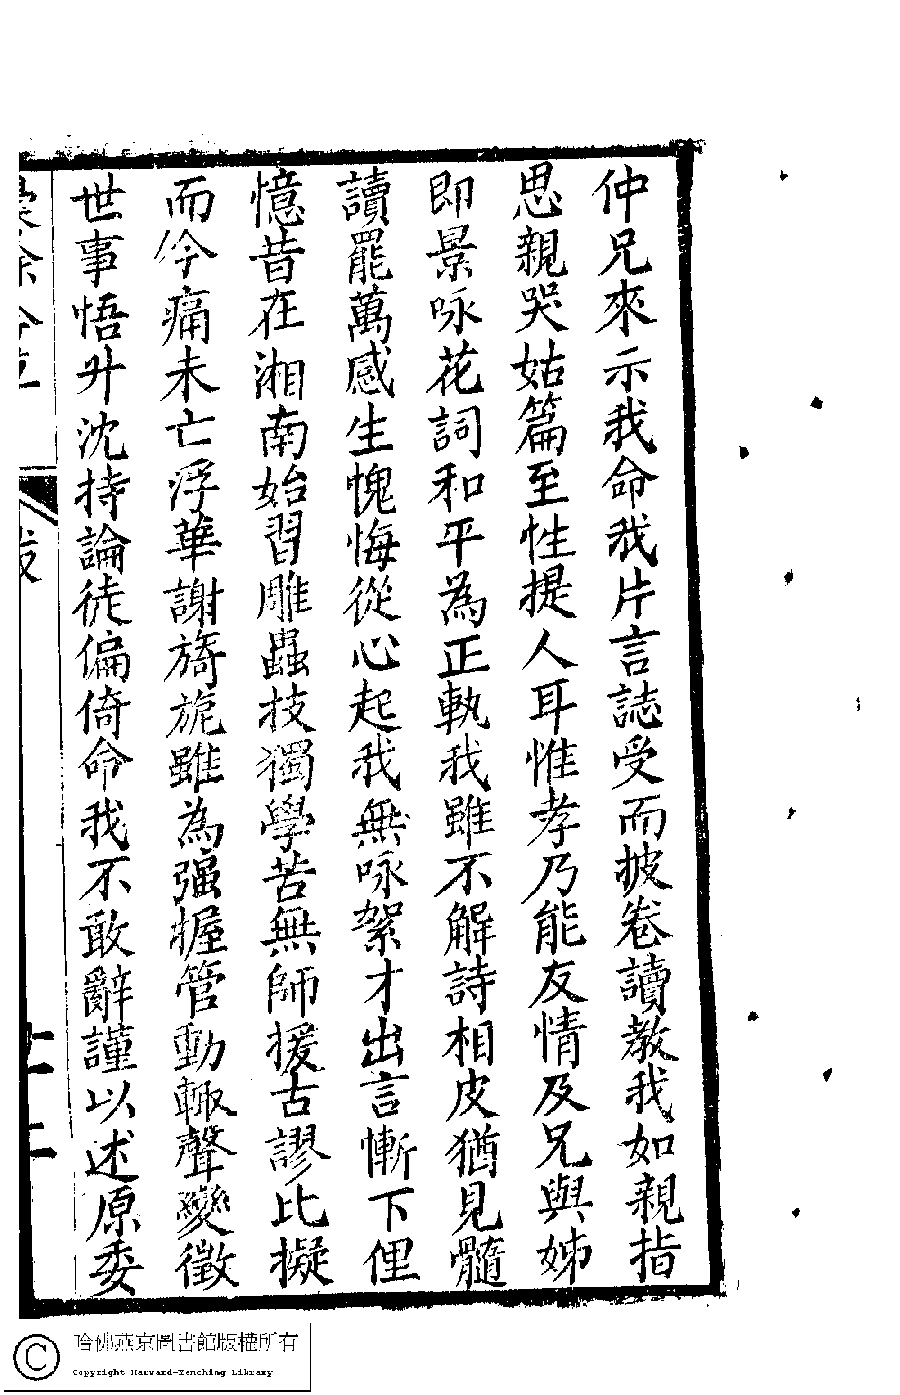 仲兄來示我命我片言誌受而披卷讀教我如親指
思親哭姑篇至性提人耳惟孝乃能友情及兄與姊
即景咏花詞和平為正執我雖不解詩相皮猶見髓
讀罷萬感生愧悔從心起我無咏絮才出言慚下俚
憶昔在湘南始習雕蟲技獨學苦無師援古謬比擬
而今痛未亡浮華謝旖旎雖為强握管動輒聲變徵
世事悟升沈持論徒偏倚命我不敢辭謹以述原委
哈佛燕京圖書館版權所有
Copyright Harvard-Yenching Library